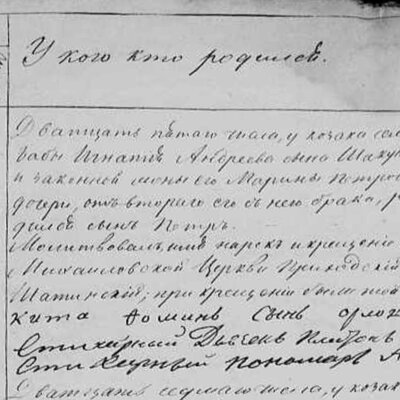 У кого кто родился.
Дватцать пятаго числа, у козака сем
бабы Игнатия Андреева сына Шаку
и законной жоны его Марины Петров
дочери, отъ втораго его съ нею брака, р
дился сынъ Петръ.
Молитвовалъ, имя нарекъ и крещение
Михаиловской Церкви Приходский
Шатинский; при крещении были той
кита Фоминъ Сынъ
Стихарный Дьячекъ
Стихарный пономарь
Дватцать седмаго числа, у козак